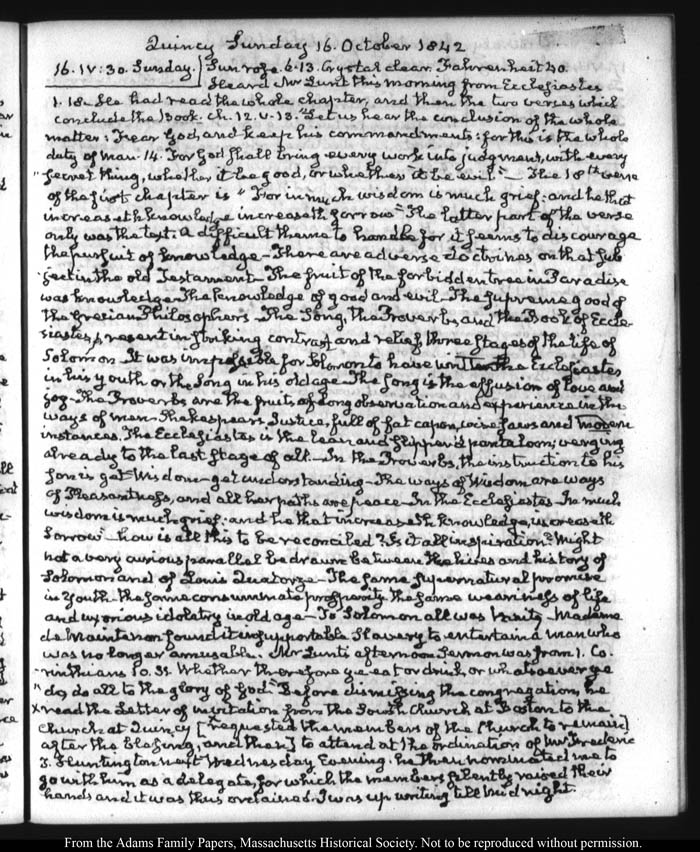 Quincy Sunday 16. October 1842
16. IV:30. Sunday. Sun rose 6.13. Crystal clear. Fahrenheit 40.
Heard Mr Lunt this morning from Ecclesiastes
1. 18. He had read the whole chapter, and then the two verses which
conclude the Book. ch. 12. v. 13. "Let us hear the conclusion of the whole
matter: Fear God, and keep his commandments: for this is the whole
duty of man. 14. For God shall bring every work into judgment, with every
"secret thing, whether it be good, or whether it be evil." — The 18th verse
of the first chapter is "For in much wisdom is much grief: and he that
increaseth knowledge increaseth sorrow" The latter part of the verse
only was the text. A difficult theme to handle for it seems to discourage
the pursuit of knowledge — There are adverse doctrines on that sub
ject in the old Testament — The fruit of the forbidden tree in Paradise
was knowledge — The knowledge of good and evil — The supreme good of
the Grecian Philosophers — The Song, the Proverbs, and the Book of Eccle-
siastes, present in striking contrast and relief three stages of the life of
Solomon It was impossible for Solomon to have written the Ecclesiastes
in his youth or the Song in his old age — The Song is the effusion of love and
joy — The Proverbs are the fruits of long observation and experience in the
ways of men — Shakespear's Justice, full of fat capon, wise saws and modern
instances. The Ecclesiastes is the lean and slipper'd pantaloon; verging
already to the last stage of all — In the Proverbs, the instruction to his
Son is get Wisdom — get understanding — The ways of Wisdom are ways
of Pleasantness, and all her paths are peace — In the Ecclesiastes — In much
wisdom is much grief: and he that increaseth knowledge, increaseth
Sorrow — how is all this to be reconciled? Is it all inspiration? Might
not a very curious parallel be drawn between the lives and history of
Solomon and of Louis Quatorze — The same supernatural promise
in Youth — the same consummate prosperity the same weariness of life
and uxorious idolatry in old age — To Solomon all was Vanity — Madame
de Maintenon found it insupportable Slavery to entertain a man who
was no longer amusable. Mr Lunt's afternoon Sermon was from 1. Co-
rinthians 10. 31. Whether therefore ye eat or drink, or whatsoever ye
"do, do all to the glory of God." Before dismissing the congregation, he
read the Letter of invitation from the South Church at Boston to the
Church at Quincy [requested the members of the Church to remain
after the blessing, and then] to attend at the ordination of Mr Frederic
D. Huntington next Wednesday Evening. he then nominated me to
go with him as a delegate, for which the members silently raised their
hands and it was thus ordained. I was up writing till midnight.
From the Adams Family Papers, Massachusetts Historical Society. Not to be reproduced without permission.